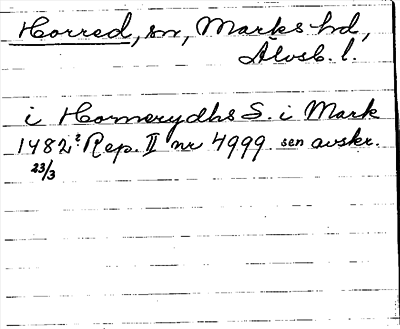 Horred, sn, Marks hd,
Älvsb. l.
i Homerydhs S. i Mark
1482? Rep. II nr 4999 sen avskr.
23/3